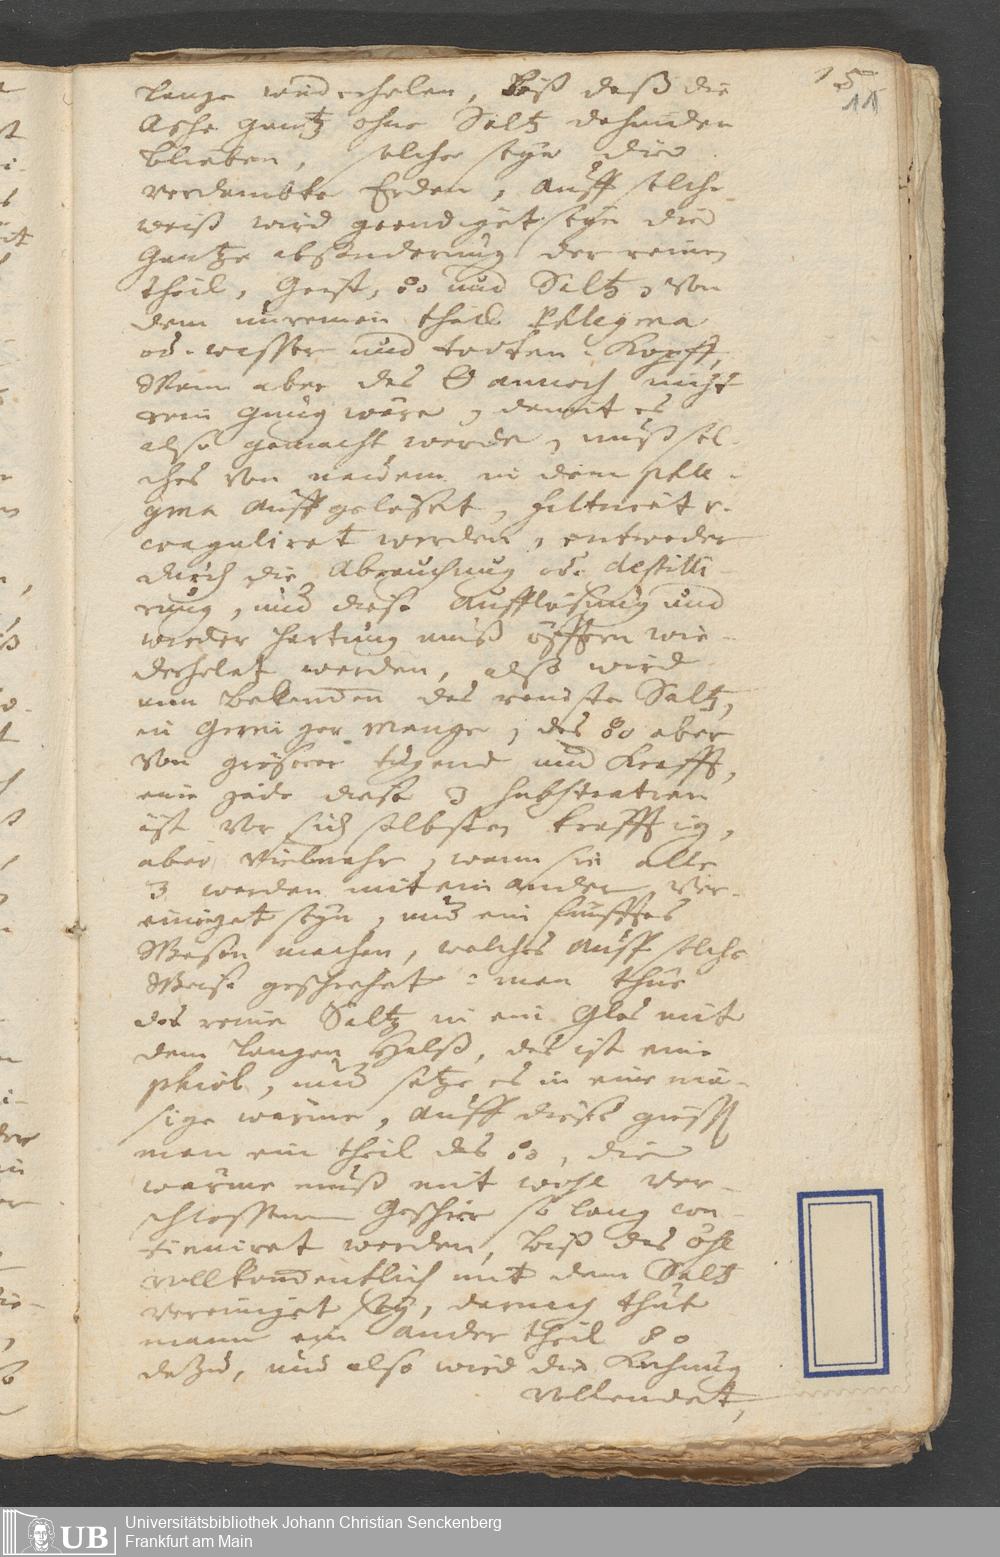 15
11
lange widerholen, biß daß die
Ashe gantz ohne Saltz dahinden
blieben, solche seyn die
verdambte Erden, auff solche
weiß wird geendiget seyn die
gantze absonderung der reinen
theil, Geist, 80 und Saltz, von
dem unreinen theil Phlegma
od. wasser und todten Kopff,
Wann aber das annoch nicht
rein gnug wäre, damit es
also gemacht werde, muß sol-
ches von neuem in dem phle-
gma auffgelöset, filtriret v.
coaguliret werden, entweder
durch die Abrauchung od. destilli-
rung, und diese Aufflösung und
wieder hartung muß öffters wie-
derholet werden, also wird
man bekenden das reinste Saltz,
in geringer menge, das 80 aber
von größerer tugend und Krafft,
eine jede dieser 3 substantien
ist vor sich selbsten kräfftig,
aber vielmehr, wann sie alle
3 werden mit ein ander ver-
einiget seyn, und ein fünfftes
Wesen machen, welches auff solche
Weise geschiehet: man thue
das reine Saltz in ein Glas mit
dem langen Halß, das ist eine
phiol, und setze es in eine mä-
sige wärme, auff dieses giesst
man ein theil des 80, die
wärme muß mit wohl ver-
schlossenem Geschirr so lang con-
tinuiret werden, biß das öhl
vollkomentlich mit dem Saltz
vereiniget sey, darnach thut
mann ein ander theil 80
dazu, und also wird die Kochung
vollendet,
Universitätsbibliothek Johann Christian Senckenberg
Frankfurt am Main
UB